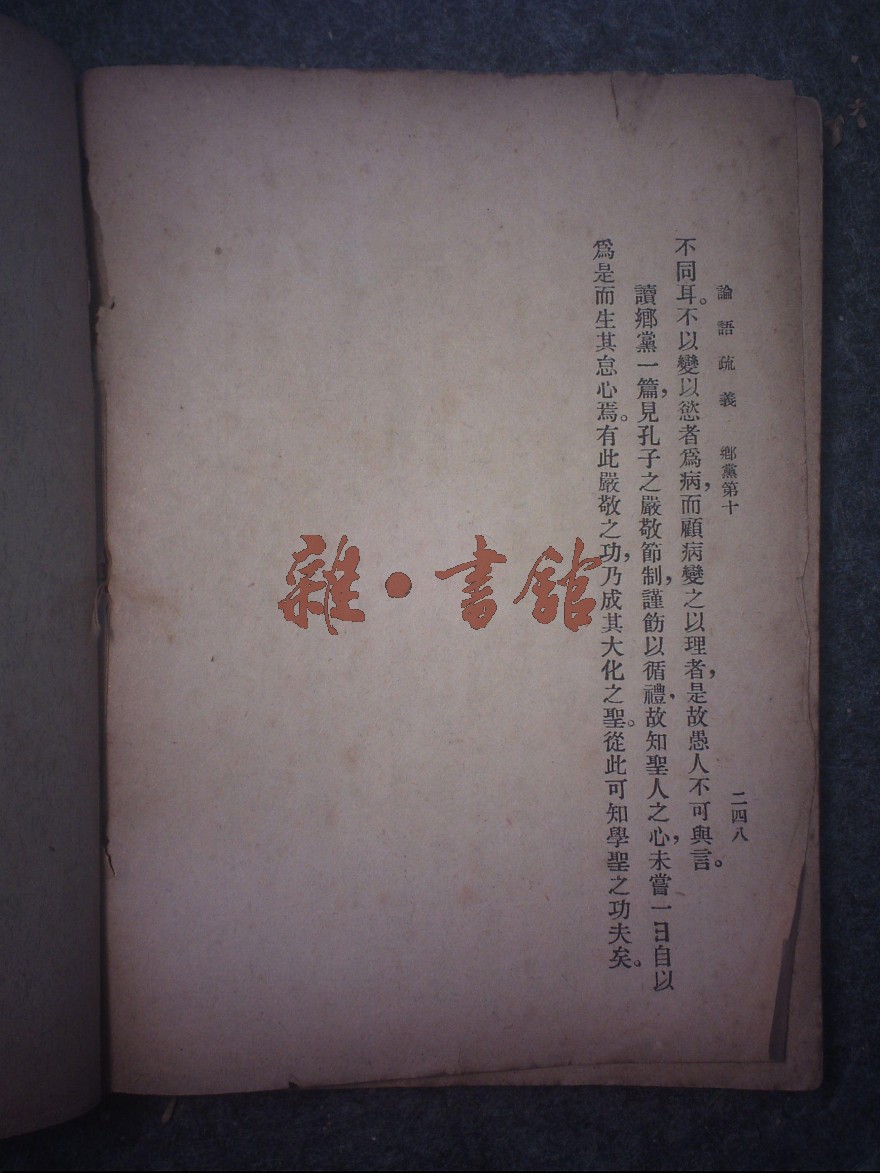 論語疏義　鄉黨第十　二四八
不同耳。不以變以慾者爲病，而顧病變之以理者，是故愚人不可與言。
讀鄉黨一篇，見孔子之嚴敬節制，謹飭以循禮，故知聖人之心，未嘗一日自以
爲是而生其怠心焉。有此嚴敬之功，乃成其大化之聖。從此可知學聖之功夫矣。
雜·書館